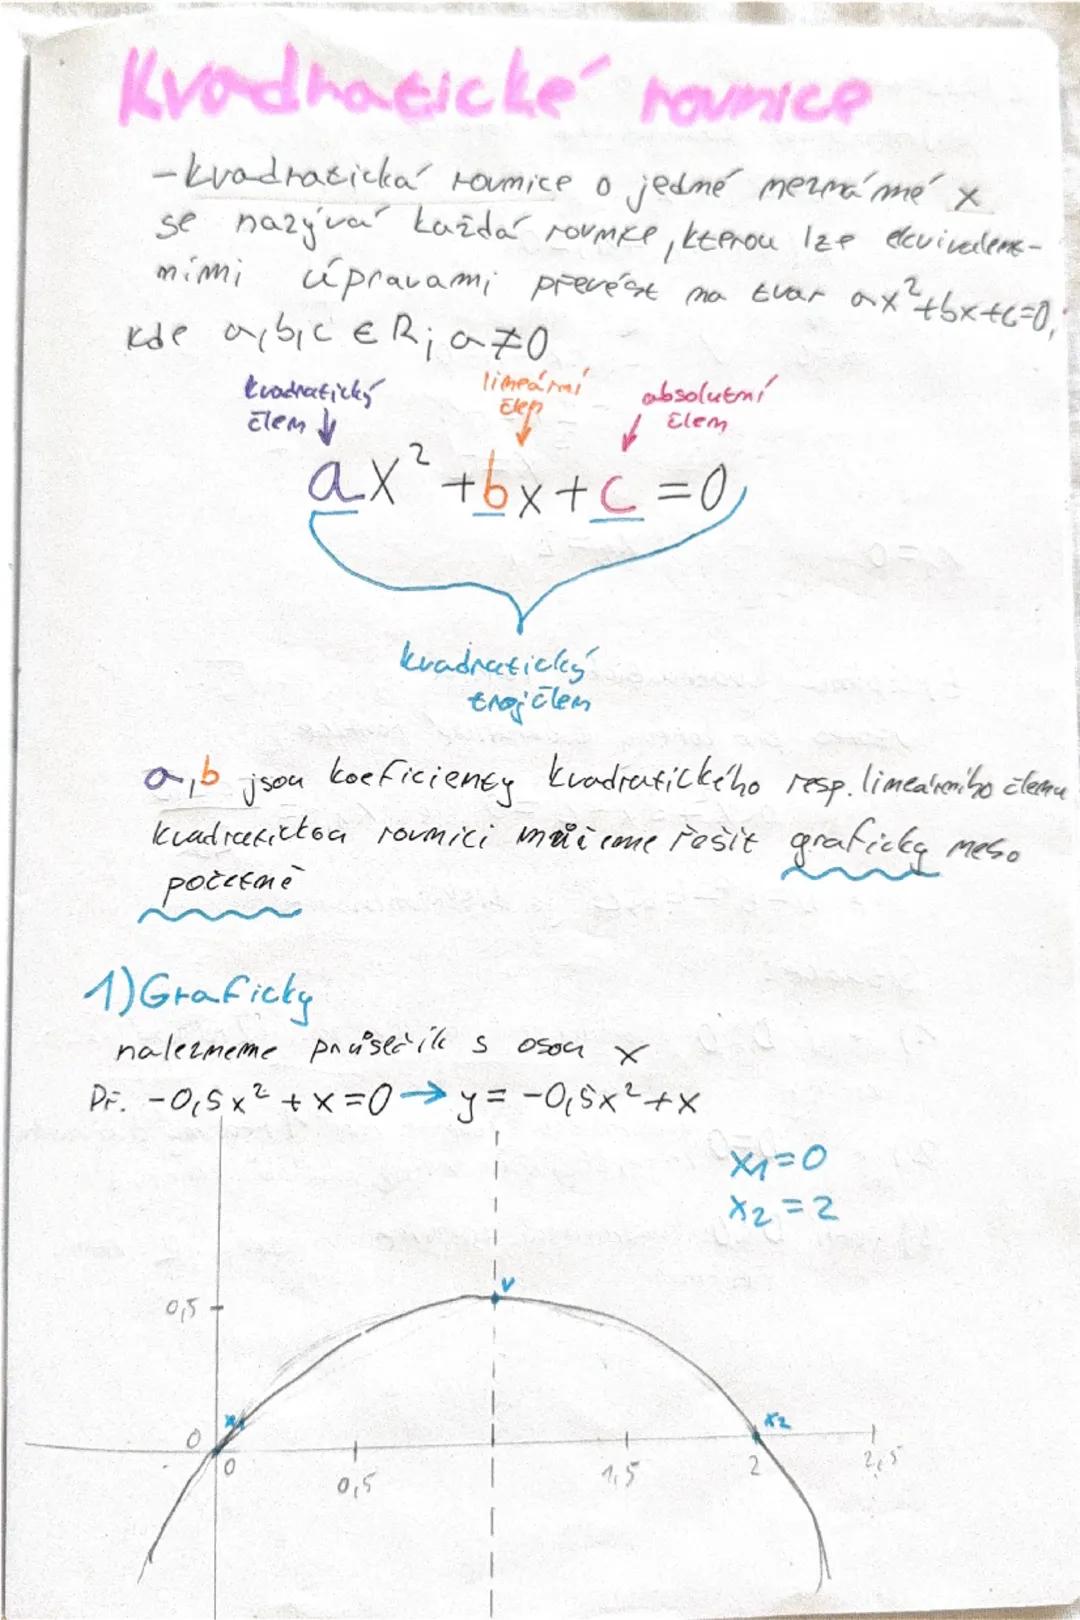 Kvadratické rovnice
-kvadratická rovnice o jedné neznámé x
se nazývá každá rovnice, kterou lze ekvivalent-
ními úpravami převést na tvar ax²+bx+c=0,
kde a,b,c ∈ R; a≠0
kvadratický člen
lineární člen
absolutní člen
ax² +bx+c =0
kvadratický
trojčlen
a,b jsou koeficienty kvadratického resp. lineárního členu
kvadratickou rovnici můžeme řešit graficky nebo
početně
1) Graficky
nalezneme průsečík s osou x
Př. -0,5x² + x =0 → y = -0,5x²+x
x1=0
x2=2
v
0,5
x1
x2
0
0
0,5
1,5
2
2,5